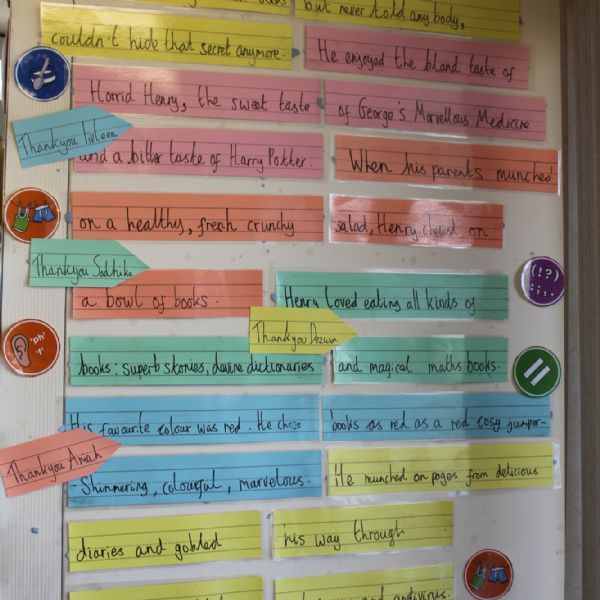 books but never told anybody,
couldn't hide that secret anymore. He enjoyed the bland taste of
Horrid Henry, the sweet taste of George's Marvellous Medicine
Thankyou Tivleen
and a bitter taste of Harry Potter. When his parents munched
on a healthy, fresh crunchy salad, Henry chewed on
Thankyou Sadhika
a bowl of books. Henry loved eating all kinds of
(!?)
:;,.
Thankyou
'ph'
'f'
books: superb stories, devine dictionaries and magical maths books.
His favourite colour was red. He chose books as red as a red cosy jumper-
Thankyou
-Shimmering, colourful, marvelous. He munched on pages from delicious
diaries and gobbled his way through
and antivirus.